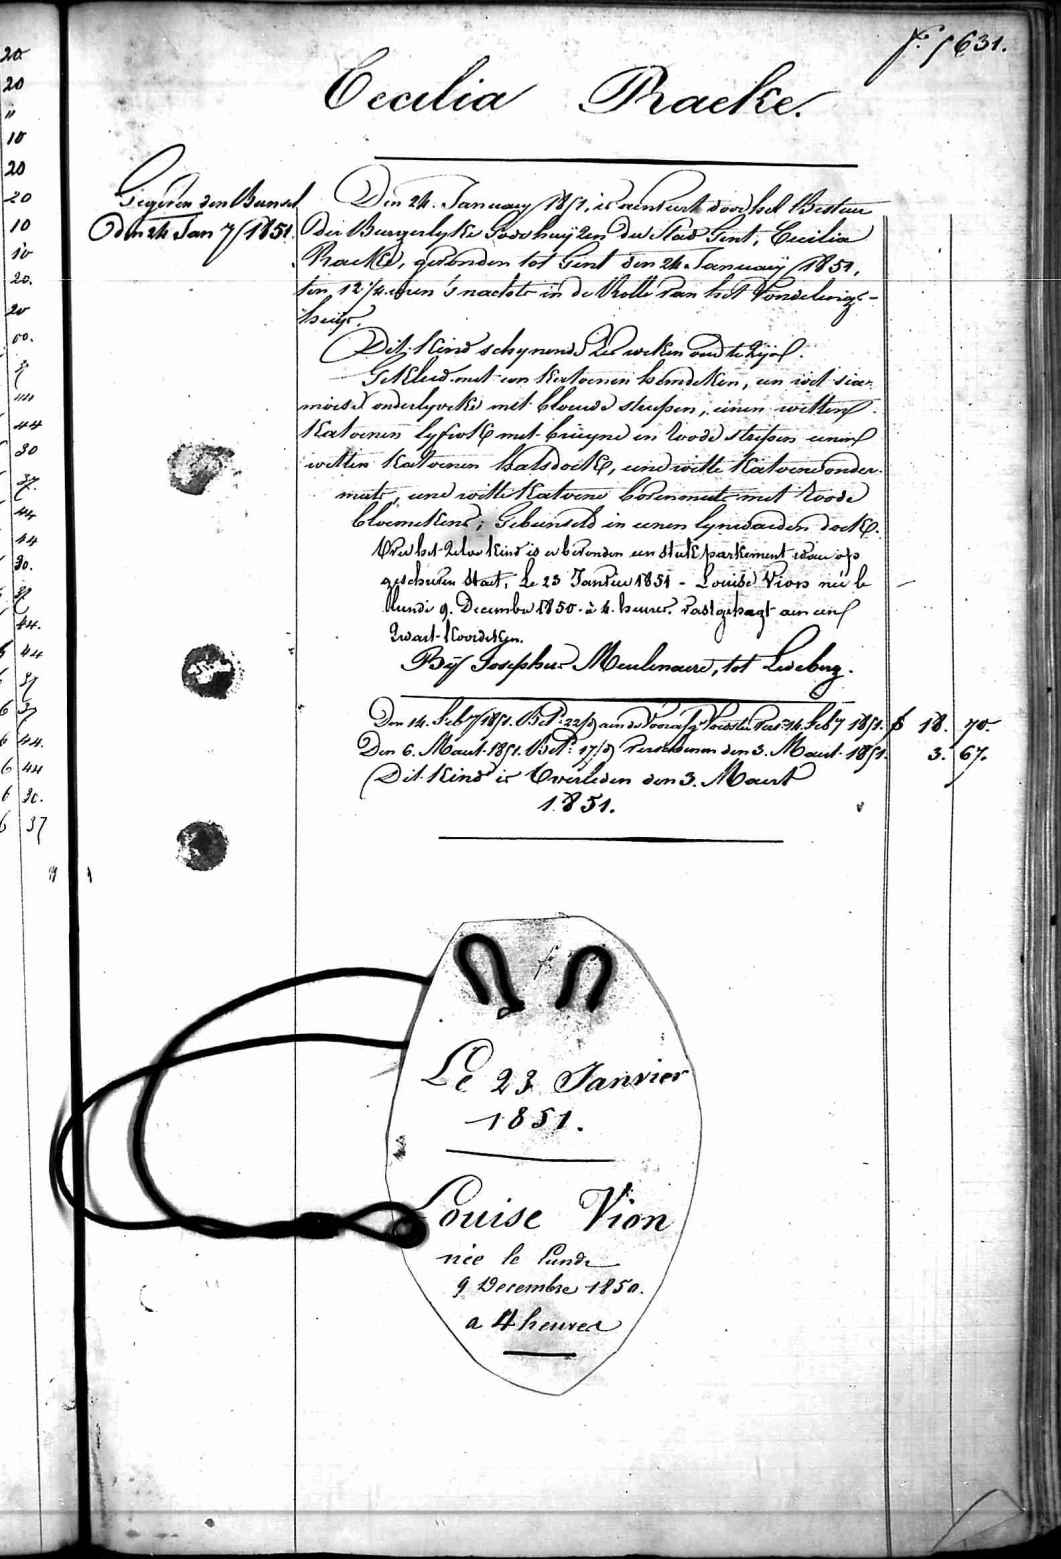 f.º 631.
Cecilia Raeke.
Gegeven den Bunsel
den 24 Jan 7/1851
Den 24. January 1851, is aenveert door het Bestuer
der Burgerlyke Godshuijzen der Stad Gent, Cecilia
Raeke, gevonden tot Gent den 24 January 1851,
ten 12 1/4 uren 's nachts in de Rolle van het Vondelings-
huijs.
Dit kind schynende Zes weken oud te Zijn.
Gekleed met een katoenen hemdeken, un wit sia-
mois onderlyveke met blauwe streepen, eenen witten
katoenen lyfrok met bruyne en roode strepen eenen
witten katoenen halsdoek, eene witte katoene onder-
muts, eene witte katoene bovenmuts met roode
bloemekens; Gebunseld in eenen lynwaeden doek.
Over het Zelve kind is er bevonden een stuk parkement waer op
geschreven staet, Le 23 Janvier 1851 - Louise Vion née le
Lundi 9. Decembre 1850. à 4. heures. vastgehegt aen een
Zwart koordeken.
Bij Josephus Meulenaere, tot Ledeberg.
Den 14. Feb 7/1851. Bet. 22/ aen de Voorsz. Voedster 14. Feb 7 1851. f 18. 70.
Den 6. Maert 1851. Bet. 17/ den 3. Maert 1851. 3. 67.
Dit kind is Overleden den 3. Maert
1851.
Le 23 Janvier
1851.
Louise Vion
née le Lundi
9 Decembre 1850.
a 4 heures